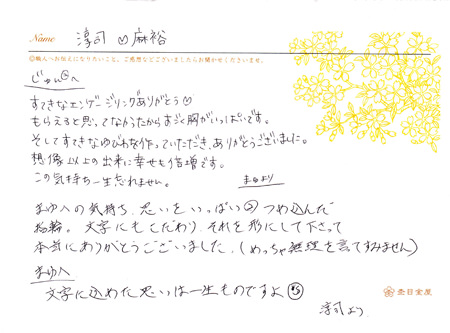 Name 淳司 ♡ 麻裕
◎職人へお伝えになりたいこと、ご感想などございましたらお聞かせくださいませ。
じゅん㋨へ
すてきなエンゲージリングありがとう♡
もらえると思ってなかったからすごく胸がいっぱいです。
そしてすてきなゆびわを作っていただき、ありがとうございました。
想像以上の出来に幸せも倍増です。
この気持ち一生忘れません。
まゆより
まゆへの気持ち、思いをいっぱいつめ込んだ
指輪。文字にもこだわり、それを形にして下さって
本当にありがとうございました。(めっちゃ無理を言てすみません)
まゆへ
文字に込めた思いは一生ものですよ
淳司より
杢目金屋